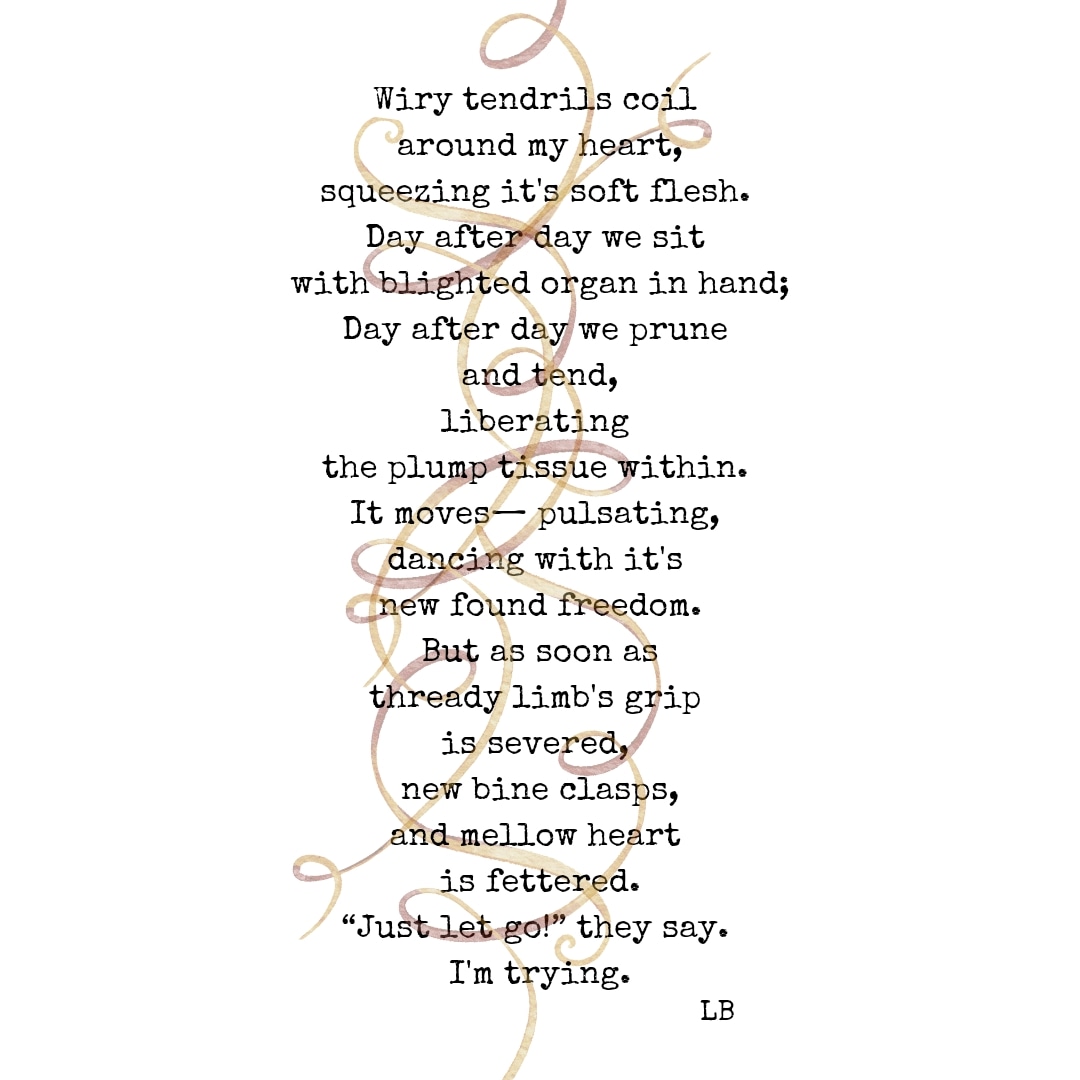 Wiry tendrils coil
around my heart,
squeezing it's soft flesh.
Day after day we sit
with blighted organ in hand;
Day after day we prune
and tend,
liberating
the plump tissue within.
It moves— pulsating,
dancing with it's
new found freedom.
But as soon as
thready limb's grip
is severed,
new bine clasps,
and mellow heart
is fettered.
“Just let go!” they say.
I'm trying.
LB